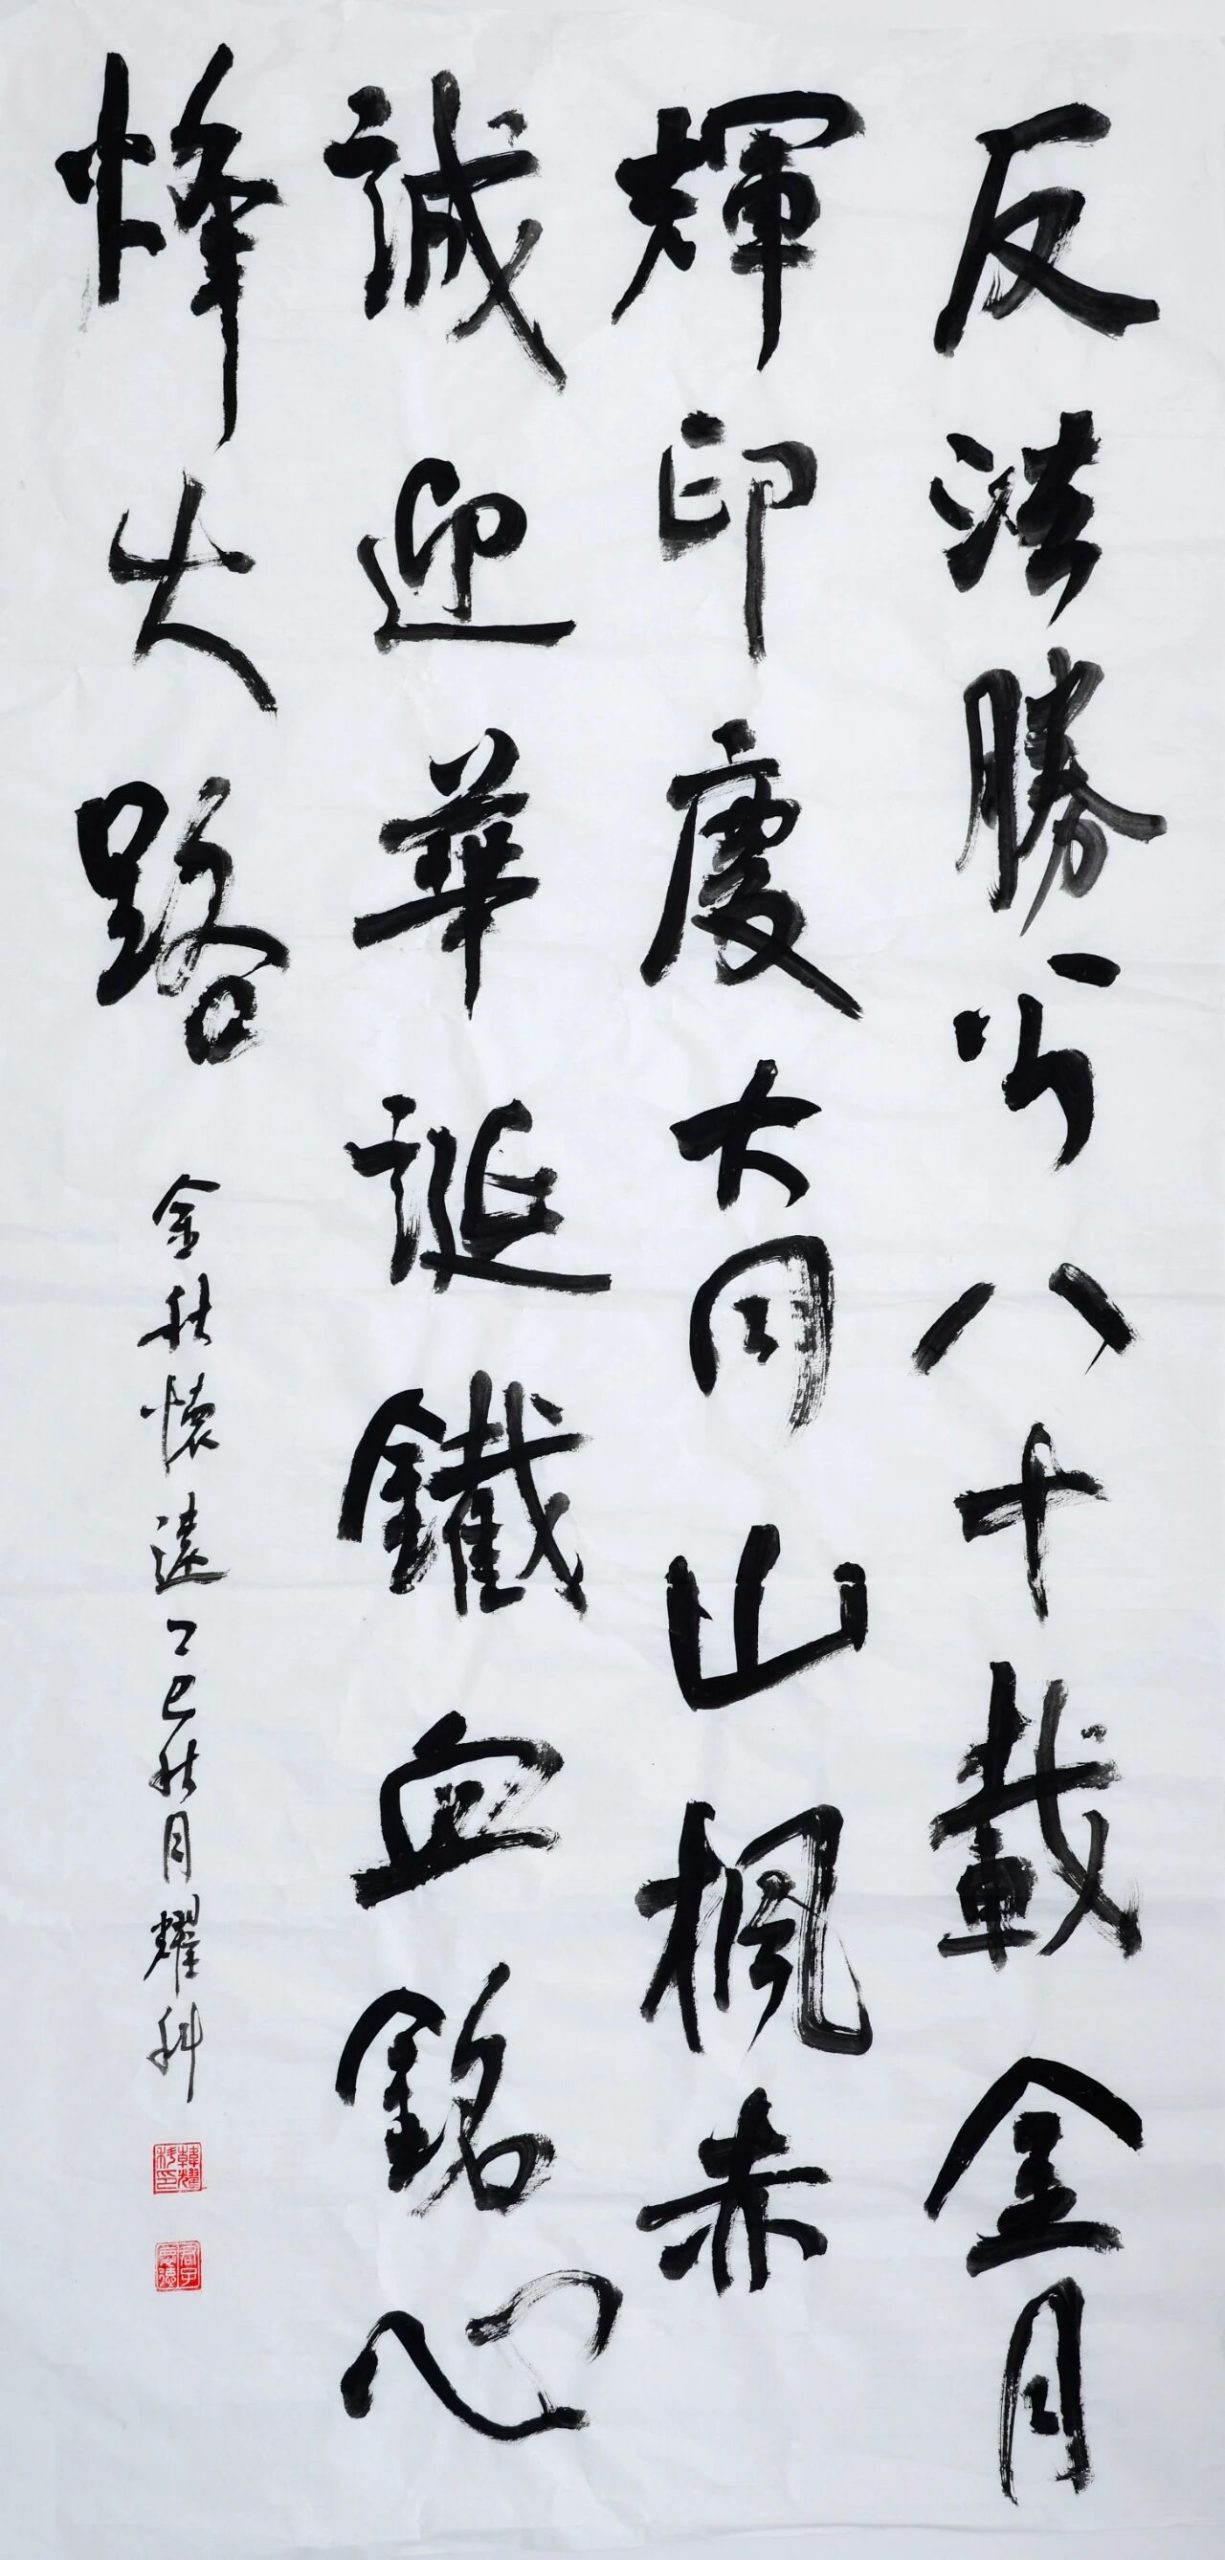 反法勝兮八十載金月
輝印慶大同山楓赤
誠迎華誕鐵血銘心
烽火路
金秋懷遠乙巳秋月耀科
韓耀科印
君子